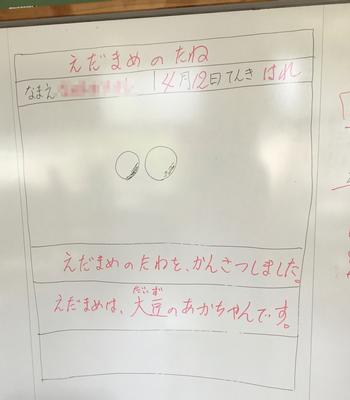 えだまめのたね
なまえ 4月12日てんき はれ
えだまめのたねを、かんさつしました。
だいず
えだまめは、大豆のあかちゃんです。